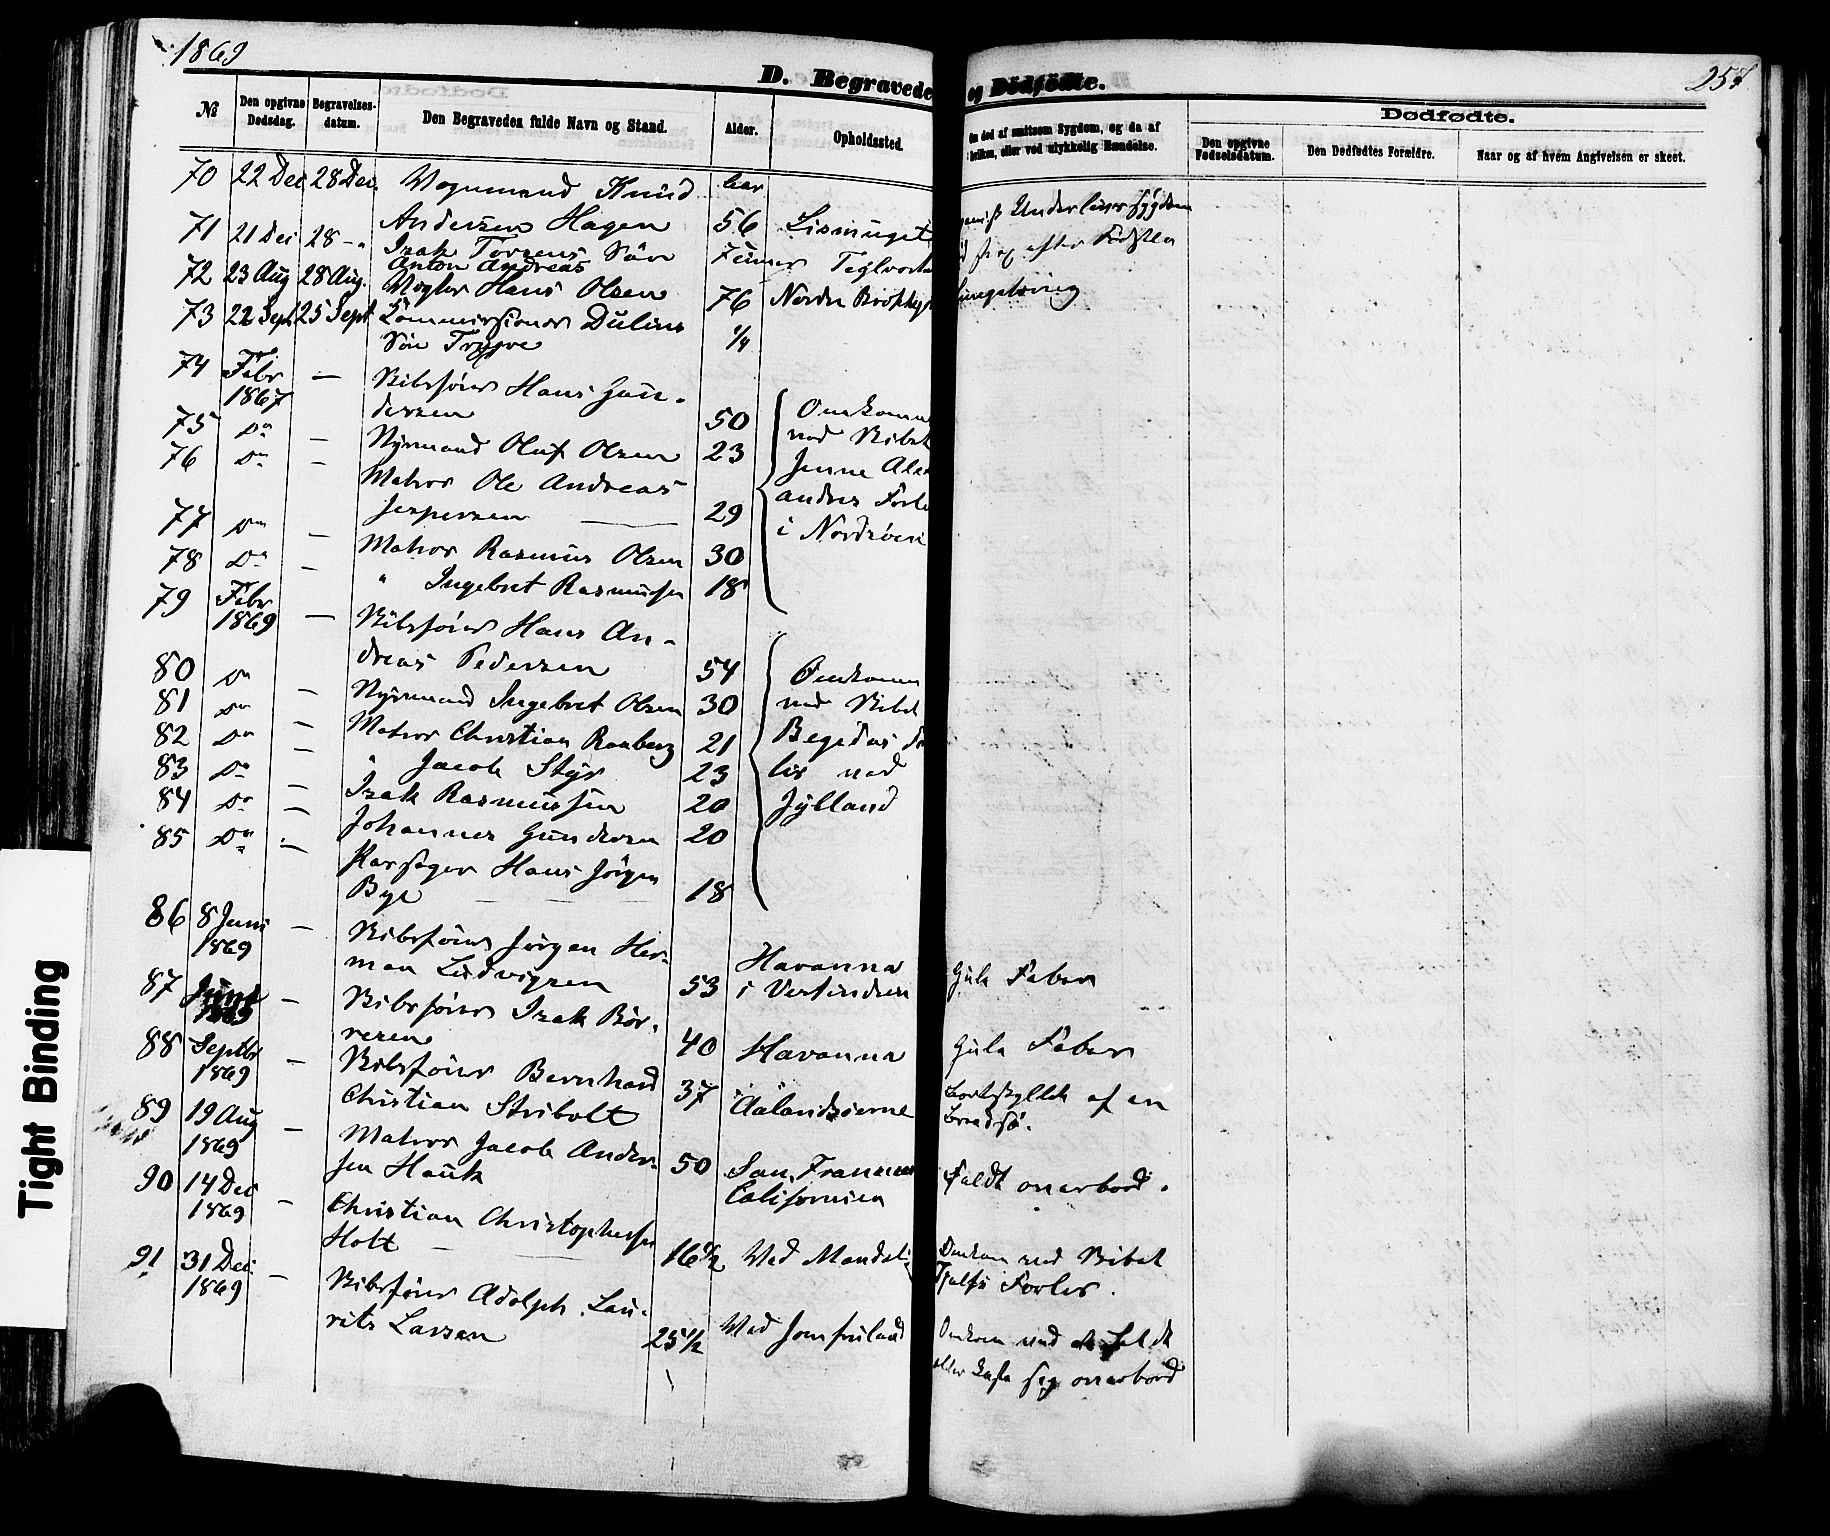 1869
257
D. Begravede og Dödfödte.
№
Den opgivne Dødsdag.
Begravelses-datum.
Den Begravedes fulde Navn og Stand.
Alder.
Opholdssted.
Om død af smitsom Sygdom, og da af
hvilken, eller ved ulykkelig Hændelse.
Dødfødte.
Den opgivne Fødselsdatum.
Den Dødfødtes Forældre.
Naar og af hvem Angivelsen er skeet.
70 22 Dec 28 Dec. Vognmand Knud
Andersen Hagen 56
71 21 Dec 28 – " Izak Torsens Søn 7 Timer Teglverk
efter Fødselen
Anton Andreas
72 23 Aug 28 Aug. Hans Olsen 76 Nordre
73 22 Sept 25 Sept Kommissionær
Søn Trygve ¼
74 Febr 1867 — Skibsfører Hans Gun-
dersen 50
75 Do — Styrmand Oluf Olsen 23
76 Do — Matros Ole Andreas
Jespersen 29
77 Do — Matros Rasmus Olsen 30
78 Do — " Ingebret Rasmussen 18
Omkomne
ved Skibet
Jenne Alex
anders Forlis
i Nordsøen
79 Febr 1869 — Skibsfører Hans An-
dreas Pedersen 54
80 Do — Styrmand Ingebret Olsen 30
81 Do — Matros Christian Ranberg 21
82 Do — " Jacob Styr 23
83 Do — Izak Rasmussen 20
84 Do — Johannes Gundersen 20
85 Do — Hans Jörgen
Bye 18
Omkomne
ved Skibet
ved
Jylland
86 8 Juni 1869 — Skibsfører Jörgen Her-
man Ludvigsen 53 Havanna
i Vestindien Gule Feber
87 Juni 1869 — Skibsfører Izak Bör-
resen 40 Havanna Gule Feber
88 Septbr 1869 — Skibsfører Bernhard
Christian Stribolt 37 Aalandsøerne Bortskyllet af en
Braadsø.
89 19 Aug 1869 — Matros Jacob Ander-
sen Hauk 50 San Francisco
Californien Faldt overbord.
90 14 Dec 1869 — Christian Christophersen
Holt 16½ Ved Mandal Omkom ved Skibet
Forlis.
91 31 Dec 1869 — Skibsfører Adolph Lau-
rits Larsen 25½ Ved Jomfruland Omkom ved at
eller kaste sig overbord
Tight Binding